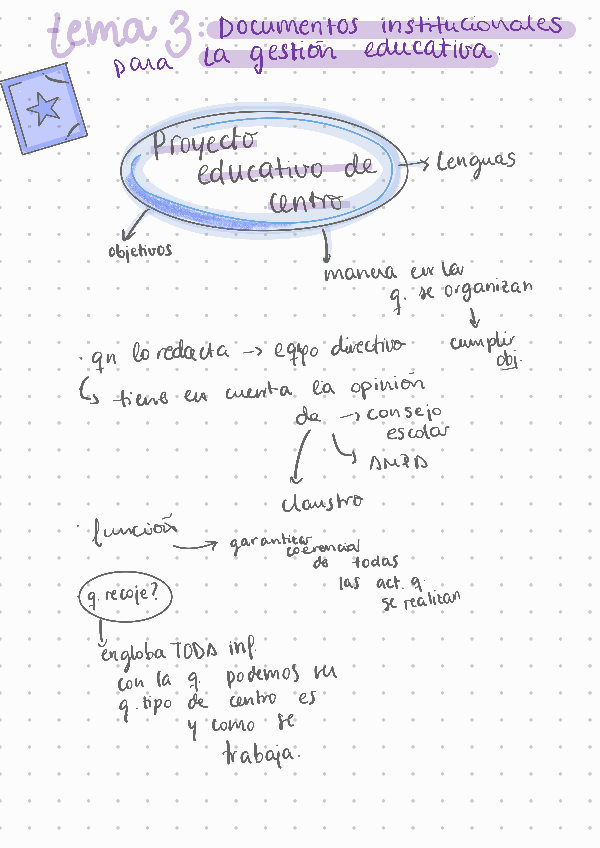 tema 3: Documentos institucionales
para la gestión educativa.
Proyecto
educativo de
centro
→ Lenguas
objetivos
manera en la
q. se organizan
cumplir
obj.
· qn lo redacta → eqpo directivo
↳ tiene en cuenta la opinión
de → consejo
escolar
AMPA
claustro
· función → garantizar
coerencial
de todas
las act. q.
se realizan
q. recoje?
engloba TODA inf.
con la q. podemos ver
q. tipo de centro es
y como se
trabaja.